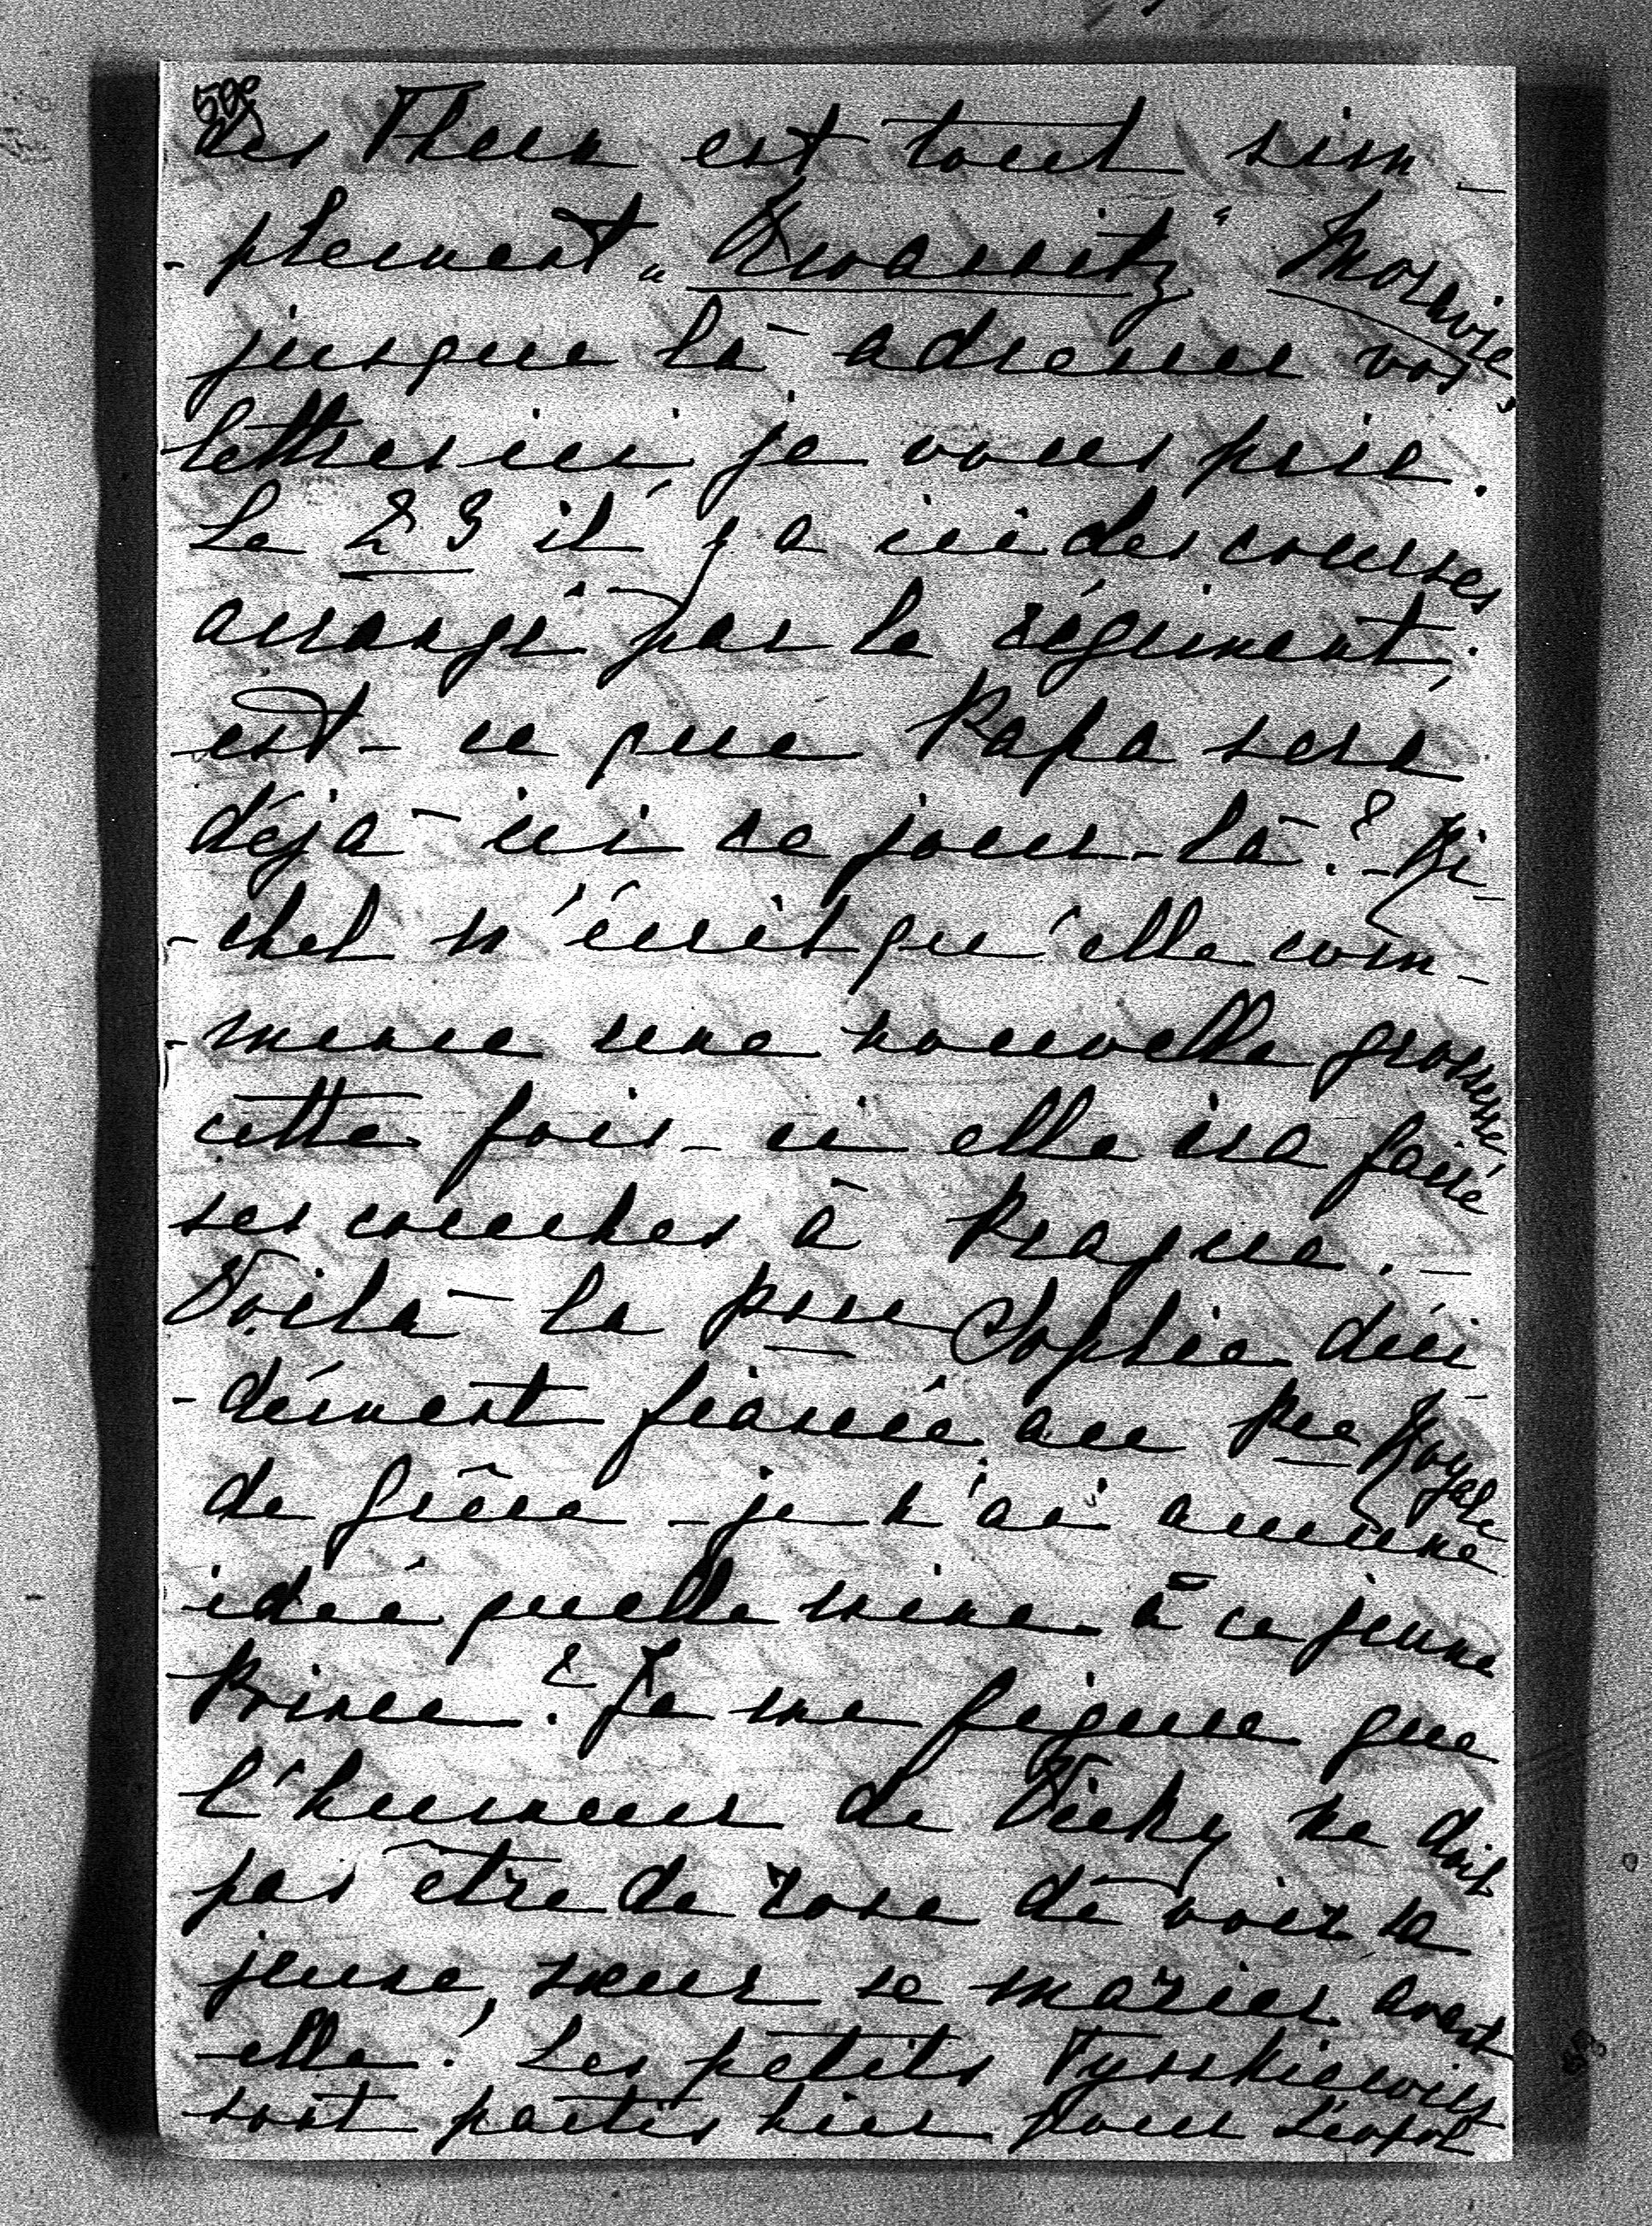 des Thun est tout sim-
-plement „Kwassitz“ Moravie,
jusque là adressez vos
lettres ici je vous prie.
Le 23 il y a ici des courses
arrangé par le régiment;
est-ce que Papa sera
déjà ici ce jour-là? - Mi-
-chel m'écrit qu'elle com-
-mence une nouvelle grossesse,
cette fois-ci elle ira faire
ses couches à Prague. -
Voilà la psse Sophie déci-
-dément fiancée au Pce Royale
de Grêce - je n'ai aucune
idée quelle mine à ce jeune
Prince? Je me figure que
l'humeur de Vicky ne doit
pas être de rose de voir sa
jeune soeur se marier avant
elle! Les petits Tysskiewicz
sont partis hier pour Léopol